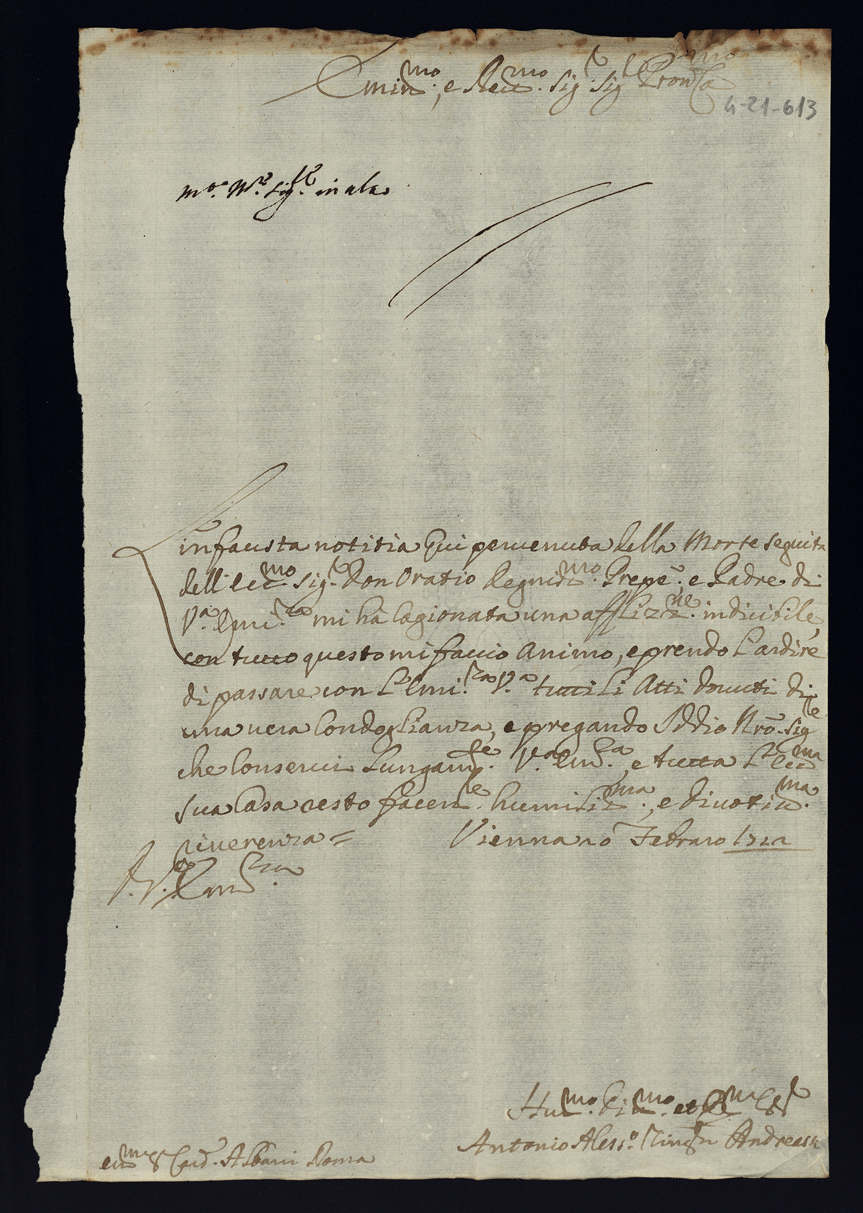 Emin.mo, e Rev.mo Sig.r Sig.r Pron
4-21-613
in alao
L'infausta notitia qui pervenuta della Morte seguita
dell'Ecc.mo Sig.r Don Oratio degnis.mo Prepe, e Padre di
V.a Emi.za mi hà Cagionata una afflizz.ne indicibile,
con tutto questo mi faccio animo, e prendo l'ardire
di passare con l'Emi.za V.a tutti li Atti dovuti di
una vera Condoglianza, e pregando Iddio Nro Sig.re
che Conservi Lungam.te V.a Em.za e tutta l'Ecc.ma
sua Casa resto facen.le humilis.ma, e divotis.ma
riverenza = Vienna 20 Febraro 1712
D. V. Em.za
Hu.mo Di.mo et
Antonio Aless.o Andreassi
Card. Albani Roma